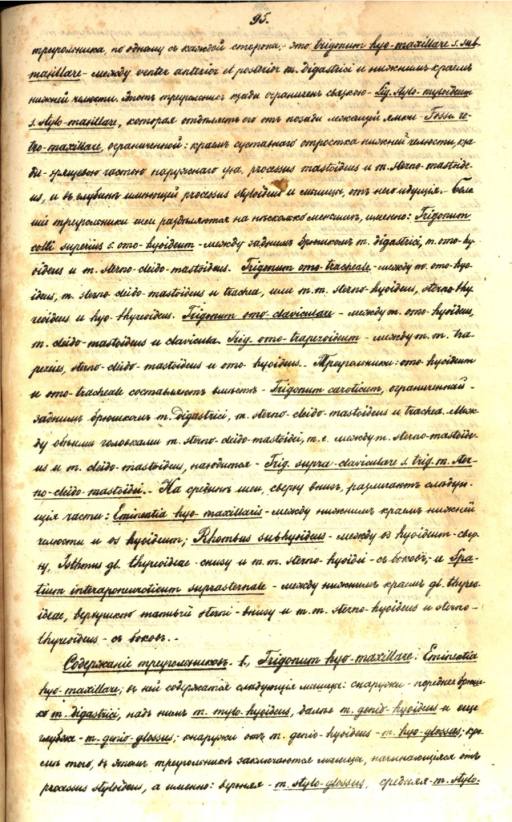 95.
треугольника, по одному съ каждой стороны, это trigonum hyo-maxillare s. sub-
maxillare - между venter anterior et posterior m. digastrici и нижнимъ краемъ
нижней челюсти. Этотъ треугольникъ сзади ограниченъ связкою - lig. stylo-myloideum
s. stylo-maxillare, которая отдѣляетъ его отъ позади лежащей ямки - Fossa re-
tro-maxillare, ограниченной: краемъ суставнаго отростка нижней челюсти, сза-
ди - хрящевою частью наружнаго уха, processus mastoideus и m. sterno-mastoide-
us, и въ глубинѣ имѣющей processus styloideus и мышцы, отъ него идущія. Боль-
шіе треугольники шеи раздѣляются на нѣсколько меньшихъ, именно: Trigonum
colli superius s. omo-hyoideum - между заднимъ брюшкомъ m. digastrici, m. omo-hy-
oideus и m. sterno-cleido-mastoideus. Trigonum omo-tracheale - между m. omo-hyo-
ideus, m. sterno-cleido-mastoideus и trachea, или m.m. sterno-hyoideus, sterno-thy-
reoideus и hyo-thyreoideus. Trigonum omo-claviculare - между m. omo-hyoideus,
m. cleido-mastoideus и clavicula. Trig. omo-trapezoideum - между m.m. tra-
pezius, sterno-cleido-mastoideus и omo-hyoideus. - Треугольники: omo-hyoideum
и omo-tracheale составляютъ вмѣстѣ - Trigonum caroticum, ограниченный -
заднимъ брюшкомъ m. digastrici, m. sterno-cleido-mastoideus и trachea. Меж-
ду обѣими головками m. sterno-cleido-mastoidei, т.е. между m. sterno-mastoide-
us и m. cleido-mastoideus, находится - Trig. supra-claviculare s. trig. m. ster-
no-cleido-mastoidei. - На срединѣ шеи, сверху внизъ, различаютъ слѣдую-
щія части: Eminentia hyo-maxillaris - между нижнимъ краемъ нижней
челюсти и os hyoideum; Rhombus subhyoideus - между os hyoideum - свер-
ху, Isthmus gl. thyreoideae - снизу и m.m. sterno-hyoidei - съ боковъ; и Spa-
tium interaponeuroticum suprasternale - между нижнимъ краемъ gl. thyreo-
ideae, верхушкою manubrii sterni - внизу и m.m. sterno-hyoideus и sterno-
thyreoideus - съ боковъ. -
Содержаніе треугольниковъ. 1, Trigonum hyo-maxillare: Eminentia
hyo-maxillare; въ ней содержатся слѣдующія мышцы: снаружи - переднее брюш-
ко m. digastrici, надъ нимъ m. mylo-hyoideus, далѣе m. genio-hyoideus и еще
глубже - m. genio-glossus; снаружи отъ m. genio-hyoideus - m. hyo-glossus; кро-
мѣ того, въ этомъ треугольникѣ заключаются мышцы, начинающіяся отъ
processus styloideus, а именно: верхняя - m. stylo-glossus, средняя - m. stylo-